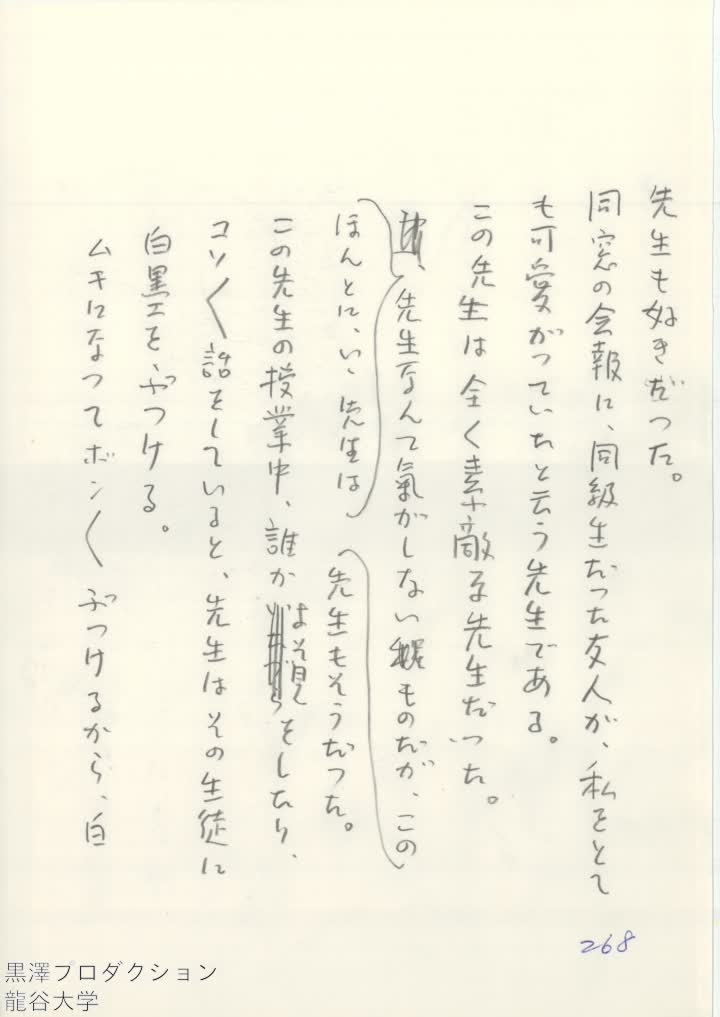 先生も好きだった。
同窓の会報に、同級生だった友人が、私をとて
も可愛がっていたと云う先生である。
この先生は全く素敵な先生だった。
、先生なんて氣がしないものだが、この
ほんとに、いゝ先生は
先生もそうだった。
この先生の授業中、誰かよそ見をしたり、
コソ〱話をしていると、先生はその生徒に
白黒エをぶつける。
ムキになってボン〱ぶつけるから、白
268
黒澤プロダクション
龍谷大学